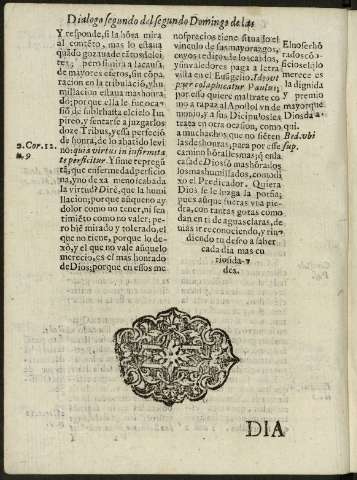 Dialogo segundo del segundo Domingo de las
Y responde, si la honra mira
al contēto, mas lo estaua
quādo gozaua de estos dolei
tes; pero si mira a la causa,
de mayores efetos, sin cōpa
racion en la tribulaciō, y hu
millacion estaua mas honra
do; porque ella le fue oca-
siō de subirse hasta el cielo Im
pireo, y sentarse a juzgar los
doze Tribus, y essa perfeciō
de honra, de lo abatido le vi
no: quia virtus in infirmita
te perficitur. Y si me regunt
tā, que enfermedad perficio
na, vno de xa menoscabada
la virtud? Diré, que la humi
llacion; porque aunque ay
dolor como no tener, ni sen
timiēto como no valer; pe-
ro biē mirado y tolerado, el
que no tiene, porque lo de-
xó, y el que no vale aūquelo
merecio, es el mas honrado
de Dios; porque en essos me
2. Cor. 12.
n. 9
nosprecios tiene situado el
vinculo de sus mayorazgos,
cuyos reditos, de los caidos,
y invalederos paga a letra
vista en el Euāgelio. Ideo vt
puer colaphicatur Paulus;
por esso quiere maltrate co
mo a rapaz al Apostol vn de
monio; y a sus Dicipulos les
trata en otra ocasion, como
a muchachos, que no siēten
las deshonras, para por esse
camino hōrallesmas; q̄ en la
casa de Dios sō mashōrados
los mashumillados, como di
xo el Predicador. Quiera
Dios se le haga la porfia;
pues aūque fueras vna pie-
dra, con tantas gotas como
dan en ti de aguas claras, de
uias ir reconociendo, y riu-
diendo tu deseo a saber
cada dia mas cu
riosida-
des.
El no ser hō
rados cō
ficioselalo
merece es
la dignida
y premio
mayor que
Dios da a
qui.
Bed. vbi
sup.
DIA